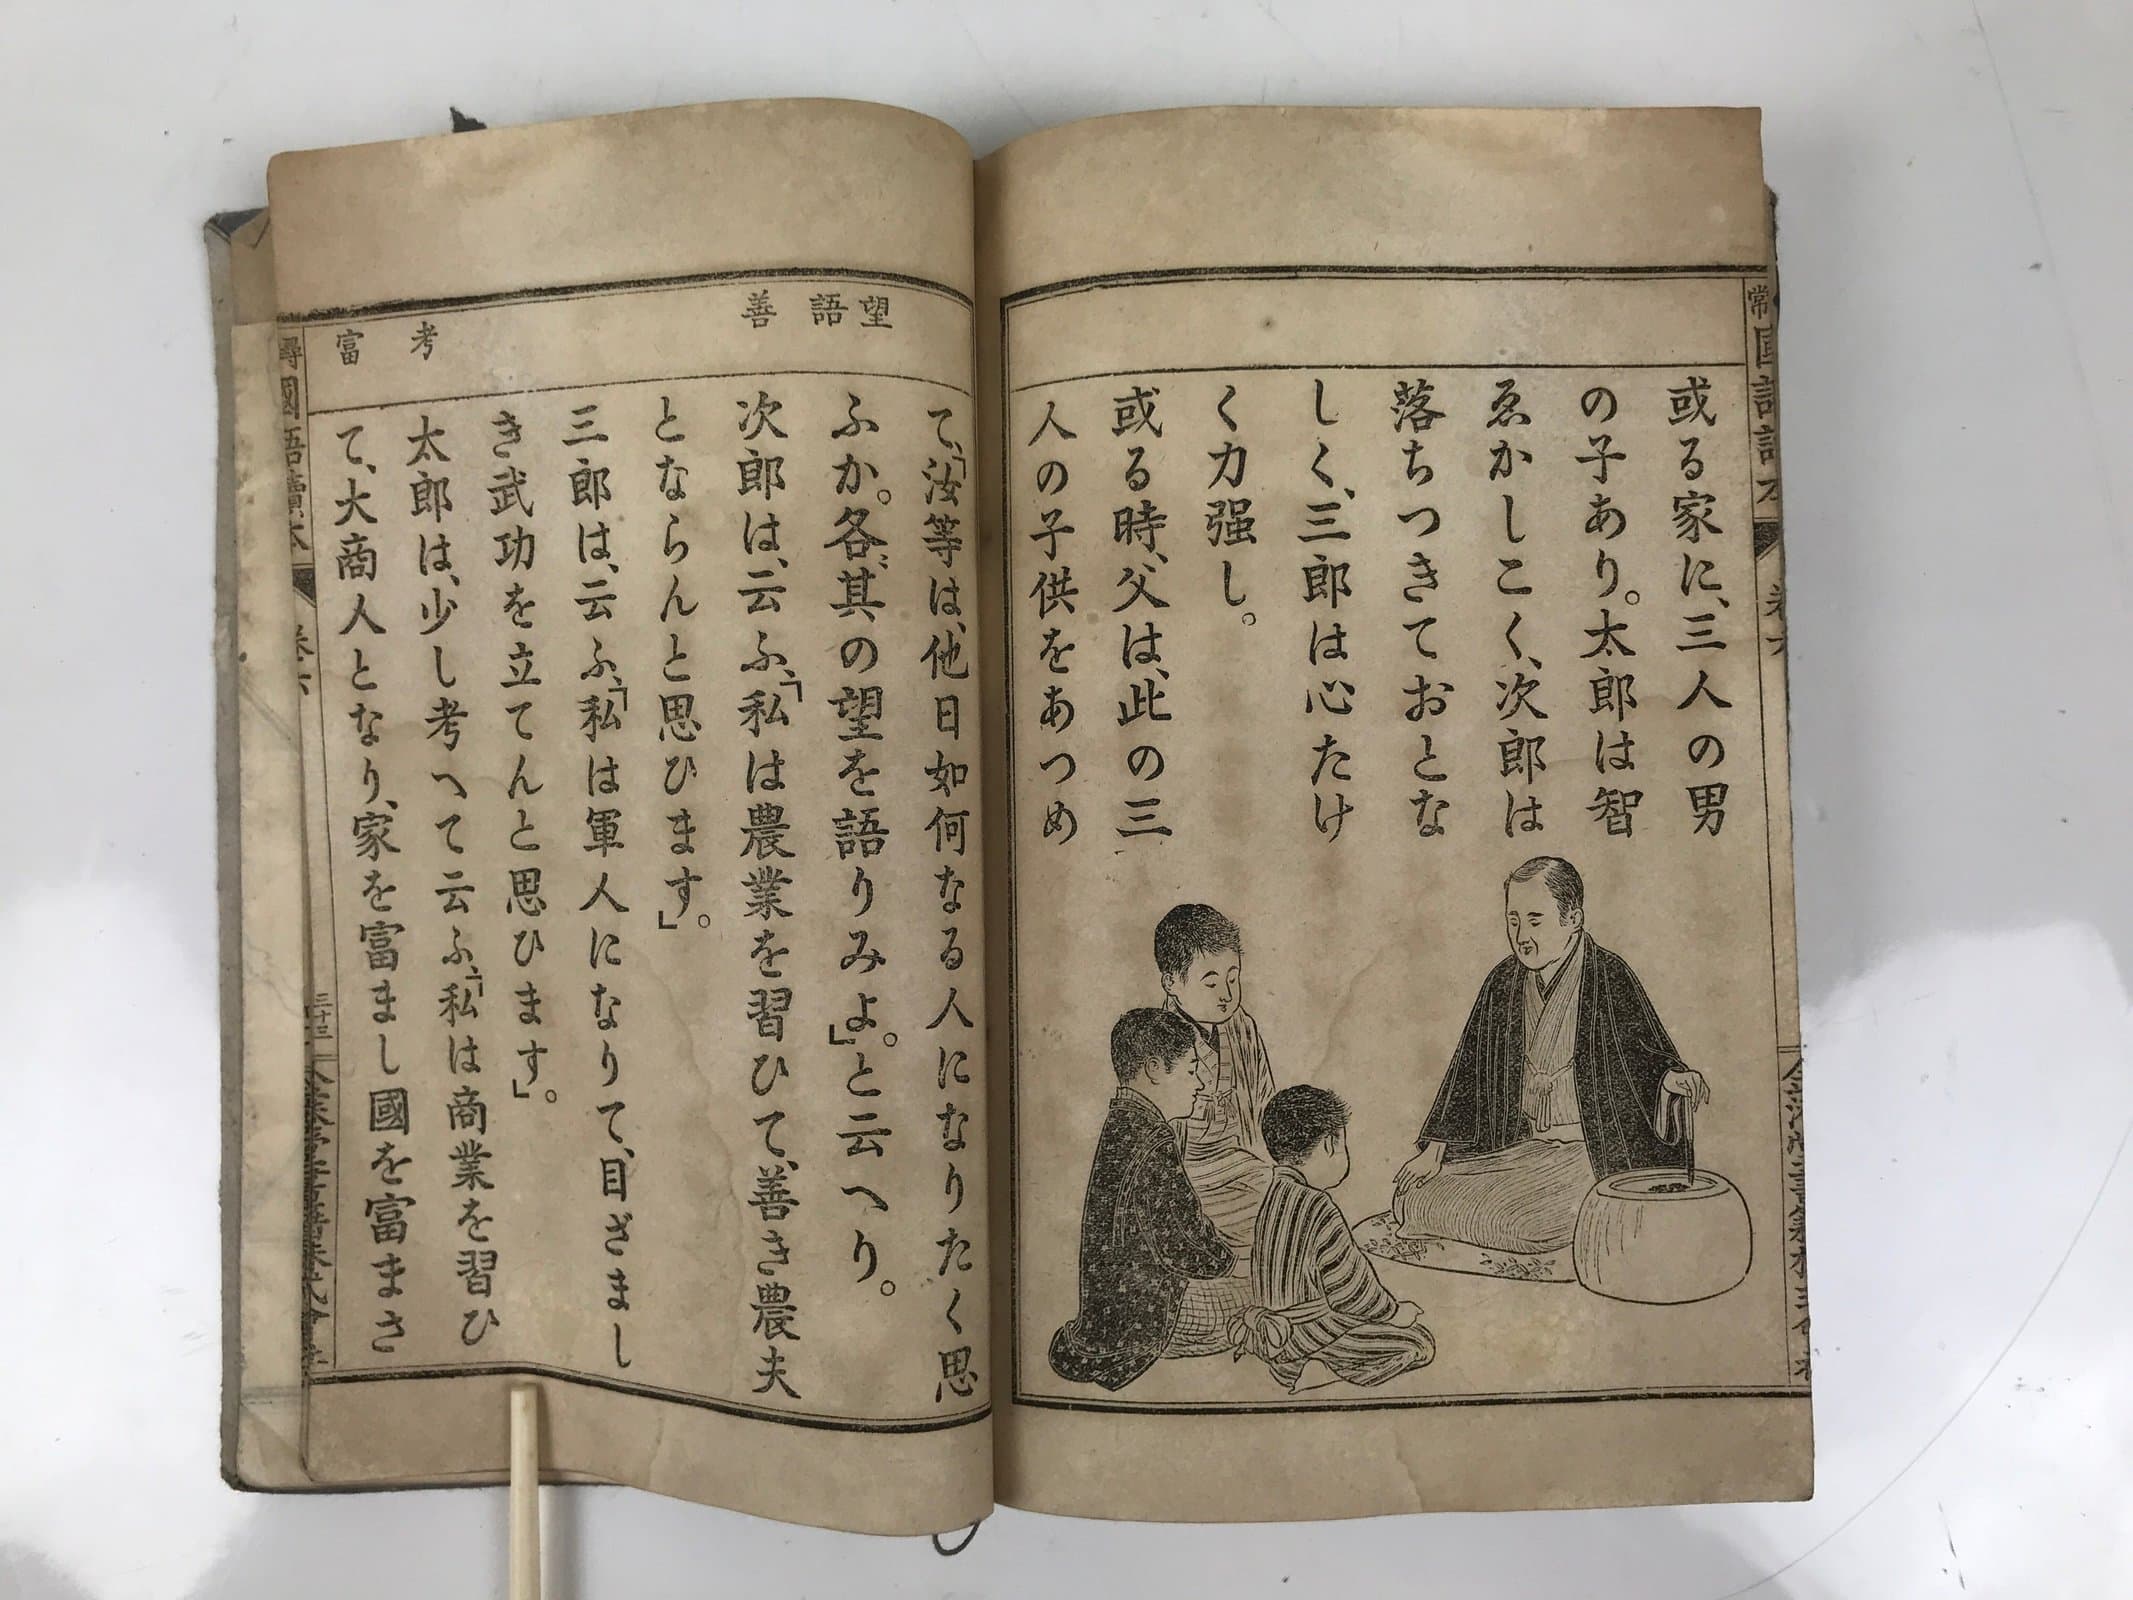 或る家に、三人の男
の子あり。太郎は智
ゑかしこく、次郎は
落ちつきておとな
しく、三郎は心たけ
く力强し。
或る時、父は、此の三
人の子供をあつめ
望
語
善
考
富
て、「汝等は、他日如何なる人になりたく思
ふか。各〻其の望を語りみよ。」と云へり。
次郎は、云ふ、「私は農業を習ひて、善き農夫
とならんと思ひます。」
三郎は、云ふ、「私は軍人になりて、目ざまし
き武功を立てんと思ひます」。
太郎は、少し考へて云ふ、「私は商業を習ひ
て、大商人となり、家を富まし國を富まさ
尋國語讀本
卷六
三十三